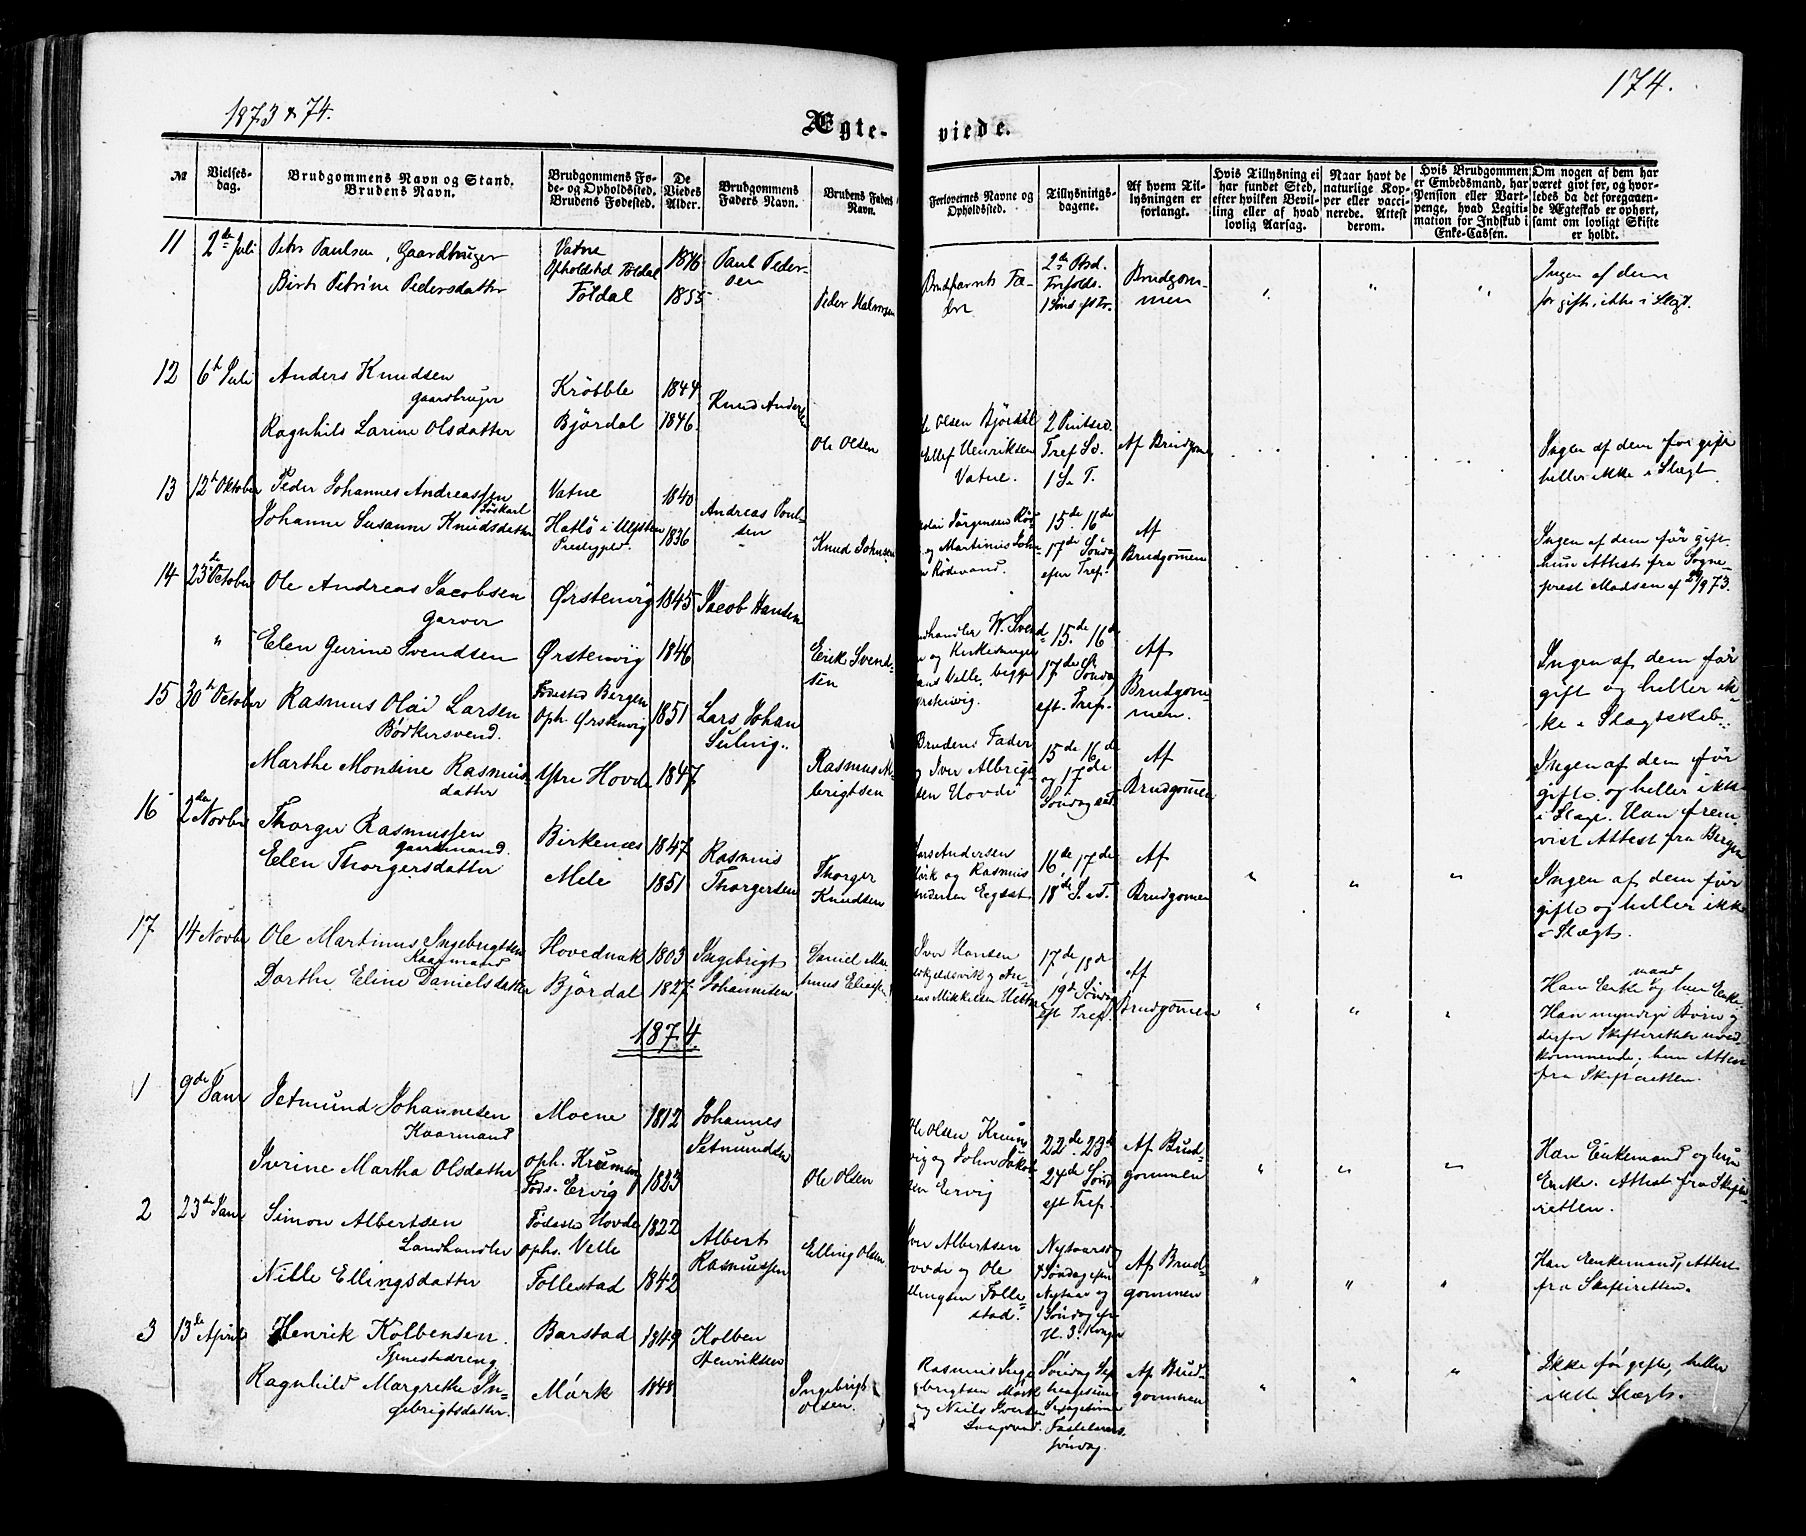 1873 & 74.
174.
Ægte-
viede.
№
Vielses-
dag.
Brudgommens Navn og Stand.
Brudens Navn.
Brudgommens Fø-
de- og Opholdssted.
Brudens Fødested.
De
Viedes
Alder.
Brudgommens
Faders Navn.
Brudens Faders
Navn.
Forlovernes Navne og
Opholdssted.
Tillysnings-
dagene.
Af hvem Til-
lysningen er
forlangt.
Hvis Tillysning ei
har fundet Sted,
efter hvilken Bevil-
ling eller af hvad
lovlig Aarsag.
Naar havt de
naturlige Kop-
per eller vacci-
nerede. Attest
derom.
Hvis Brudgommen
er Embedsmand, har
Pension eller Vart-
penge, hvad Legiti-
mation for Indskud i
Enke-Cassen.
Om nogen af dem har
været givt før, og hvor-
ledes da det foregaaen-
de Ægteskab er ophørt,
samt om lovligt Skifte
er holdt.
11 2de Juli
Petr Paulsen, Gaardbruger
Birte Petrine Pedersdatter
Vatne
Opholdsted Foldal
Foldal
1846
1855
Paul Peder-
sen
Peder Halvorsen
Brudparrets Fæ-
dre
Trefolds.
Brudgom-
men
Ingen af dem
før gift, ikke i Slægt.
12 6te Juli
Anders Knudsen
Gaardbruger
Ragnhild Larine Olsdatter
Krøbble
Bjørdal
1844
1846
Knud Anders
Ole Olsen
Olsen Bjørdal
Ellef Henriksen
Vatne.
2 Pintsed.
Tref. Sø.
1 S. T.
Af Brudgom
Ingen af dem før gift
heller ikke i Slægt
13 12te Oktober
Peder Johannes Andreassen
Johanne Susanne Knudsdatter
Vatne
Hatlø i Ulfsten
Prestegjeld.
1840
1836
Andreas Poul-
sen
Knud Johnsen
Jørgensen
og Martinus John-
n Rødevand.
15de 16de
17de Søndag
efter Tref.
Af
Brudgommen
Ingen af dem før gift.
hun Attest fra Sogne-
prest Madsen af 29/9 73.
14 23de October
Ole Andreas Jacobsen
Garver
" Elen Gurine Svendsen
Ørstenvig
Ørstenvig
1845
1846
Jacob Hansen
Erik Svend-
sen
handler W. Svend-
n og Kirkesanger
Velle, begge
rstenvig.
15de 16de
17de Søndag
eft. Tref.
Af
Brudgom-
men.
Ingen af dem før
gift og heller ik-
ke i Slægtskab.
15 30te October
Rasmus Olai Larsen
Bødkersvend.
Marthe Monsine Rasmus-
datter
Fødested Bergen
Oph. Ørstenvig
Ytre Hovde
1851
1847
Lars Johan
Rasmus Al-
brigtsen
Brudens Fader
og Iver Albrigt-
sen Hovde
15de 16de
og 17de
Søndag
Af
Brudgommen
Ingen af dem før
gift og heller ikke
i Slægt. Han frem-
vist Attest fra Bergen
16 2den Novbr
Thorger Rasmussen
Gaardmand.
Elen Thorgersdatter
Birkenæs
Mele
1847
1851
Rasmus
Thorgersen
Thorger
Knudsen
Lars Andersen
Mørk og Rasmus
Andersen Egset.
16de 17de
18de S. e. T.
Af
Brudgommen
Ingen af dem før
gift og heller ikke
i Slægt.
17 14 Novbr
Ole Martinus Ingebrigtsen
Kaarmand
Dorthe Eline Danielsdatter
Hovednak
Bjørdal
1803
1827
Ingebrigt
Johannesen
Daniel Mar-
thinus Eliasen
Iver Hansen
17de, 18de
19de Søndag
eft Tref.
Af
Brudgommen
Ham Enkemand og hun Enke.
Han myndige Børn og
derfor Skifteretten uved-
kommende. hun Attest
fra Skifteretten.
1874
1 9de Janr
Petmund Johannesen
Kaarmand
Iverine Martha Olsdatter
Moene
Oph. Krumsvig
Føds. Ervig
1812
1823
Johannes
Petmundsen
Ole Olsen
Ole Olsen Krums-
vig og John Jakob-
sen Ervig
22de 23de
24de Sønd.
eft Tref.
Af Brud-
gommen
Han Enkemand og hun
Enke. Attest fra Skifte-
retten.
2 23de Janr
Simon Albertsen
Landhandler
Nille Ellingsdatter
Fødested Hovde
Ophs. Velle
Follestad
1822
1842
Albert
Rasmussen
Elling Olsen
Iver Albertsen
Hovde og Ole
Ellingsen Folle-
stad.
Nytaarsdag
1 Søndag efter
Nytaar og
1 Søndag efter
H. 3. Konger
Af Brud-
gommen
Han Enkemand, Attest
fra Skifteretten.
3 13de April
Henrik Kolbensen.
Tjenestedreng
Ragnhild Margrethe In-
gebrigtsdatter.
Barstad
Mørk
1849
1848
Kolben
Henriksen
Ingebrigt
Olsen.
Rasmus Inge-
brigtsen Mørk
og Niels Iversen
Søndag Sep-
tuagesima
Sexagesima
Fastelavns-
søndag
Af Brud-
gommen
Ikke før gifte, heller
ikke Slægt.